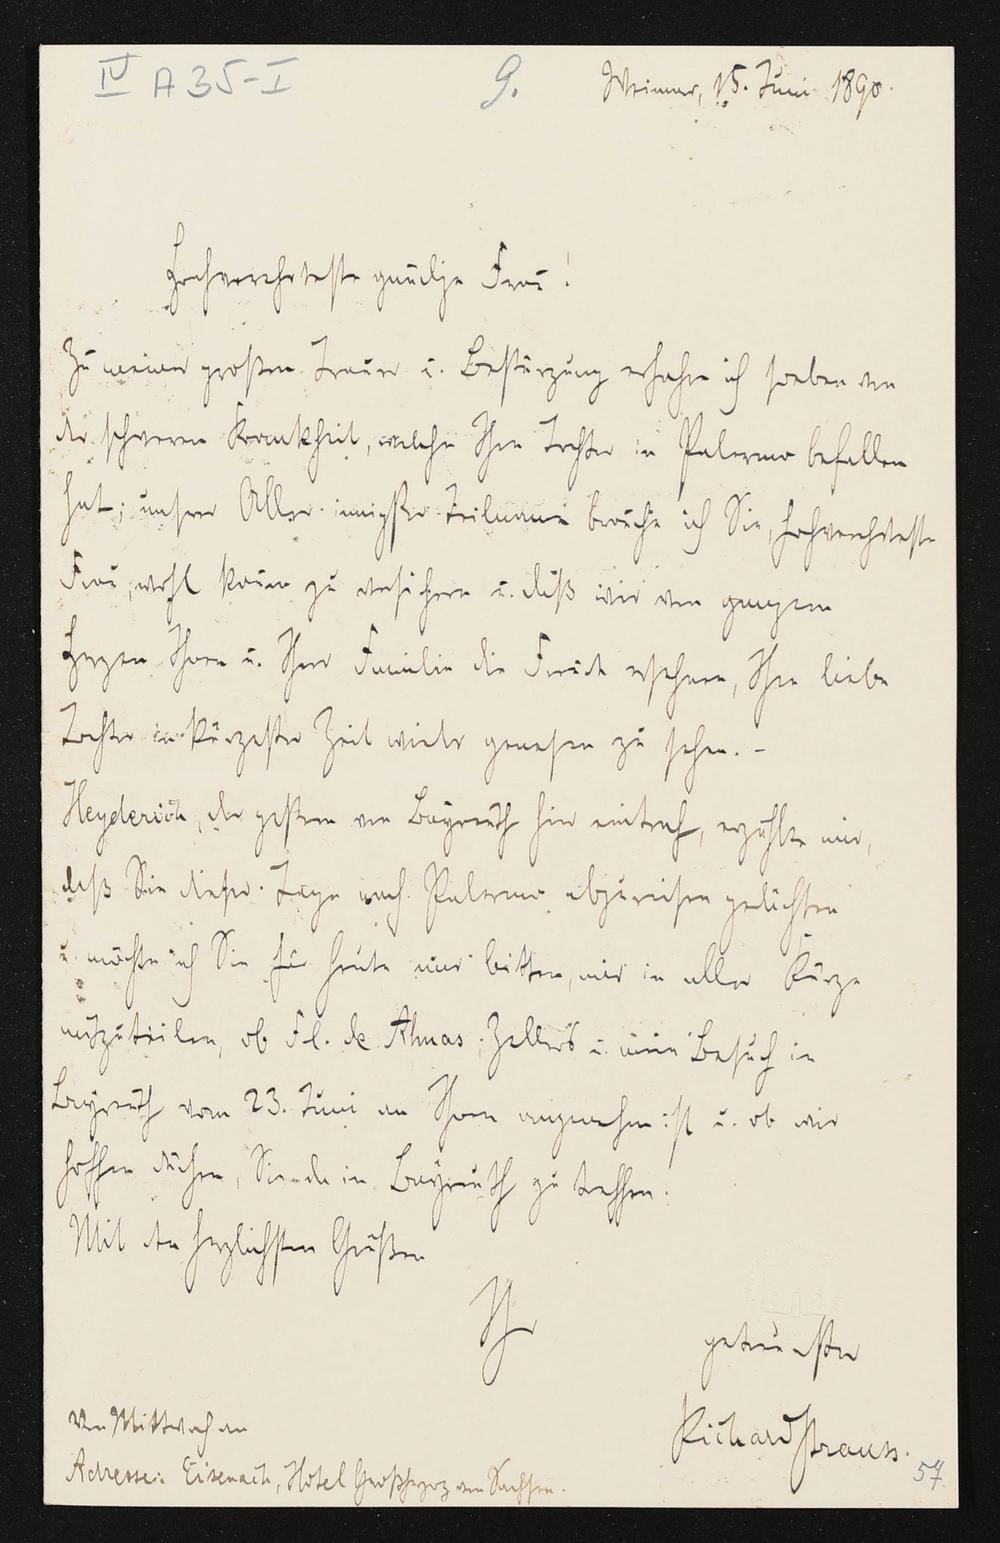 IV A 35-I
9.
Weimar, 15. Juni 1890.
Hochverehrteste gnädige Frau!
Zu meiner großen Trauer u. Bestürzung erfahre ich soeben von
der schweren Krankheit, welche Ihre Tochter in Palermo befallen
hat; unsrer Aller innigster Teilname brauche ich Sie, hochverehrteste
Frau, wohl kaum zu versichern u. daß wir von ganzem
Herzen Ihnen u. Ihrer Familie die Freude ersehnen, Ihre liebe
Tochter in kürzester Zeit wieder genesen zu sehen. –
Heyderich, der gestern von Bayreuth hier eintraf, erzählte mir,
daß Sie dieser Tage nach Palermo abzureisen gedächten
u. möchte ich Sie für heute nur bitten, mir in aller Kürze
mitzuteilen, ob Frl. de Ahnas, Zellers u. mein Besuch in
Bayreuth vom 23. Juni an Ihnen angenehm ist u. ob wir
hoffen dürfen, Sie da in Bayreuth zu treffen.
Mit den herzlichsten Grüßen
Ihr
getreuester
Richard Strauss.
Von Mittwoch an
Adresse: Eisenach, Hôtel Großherzog von Sachsen.
57